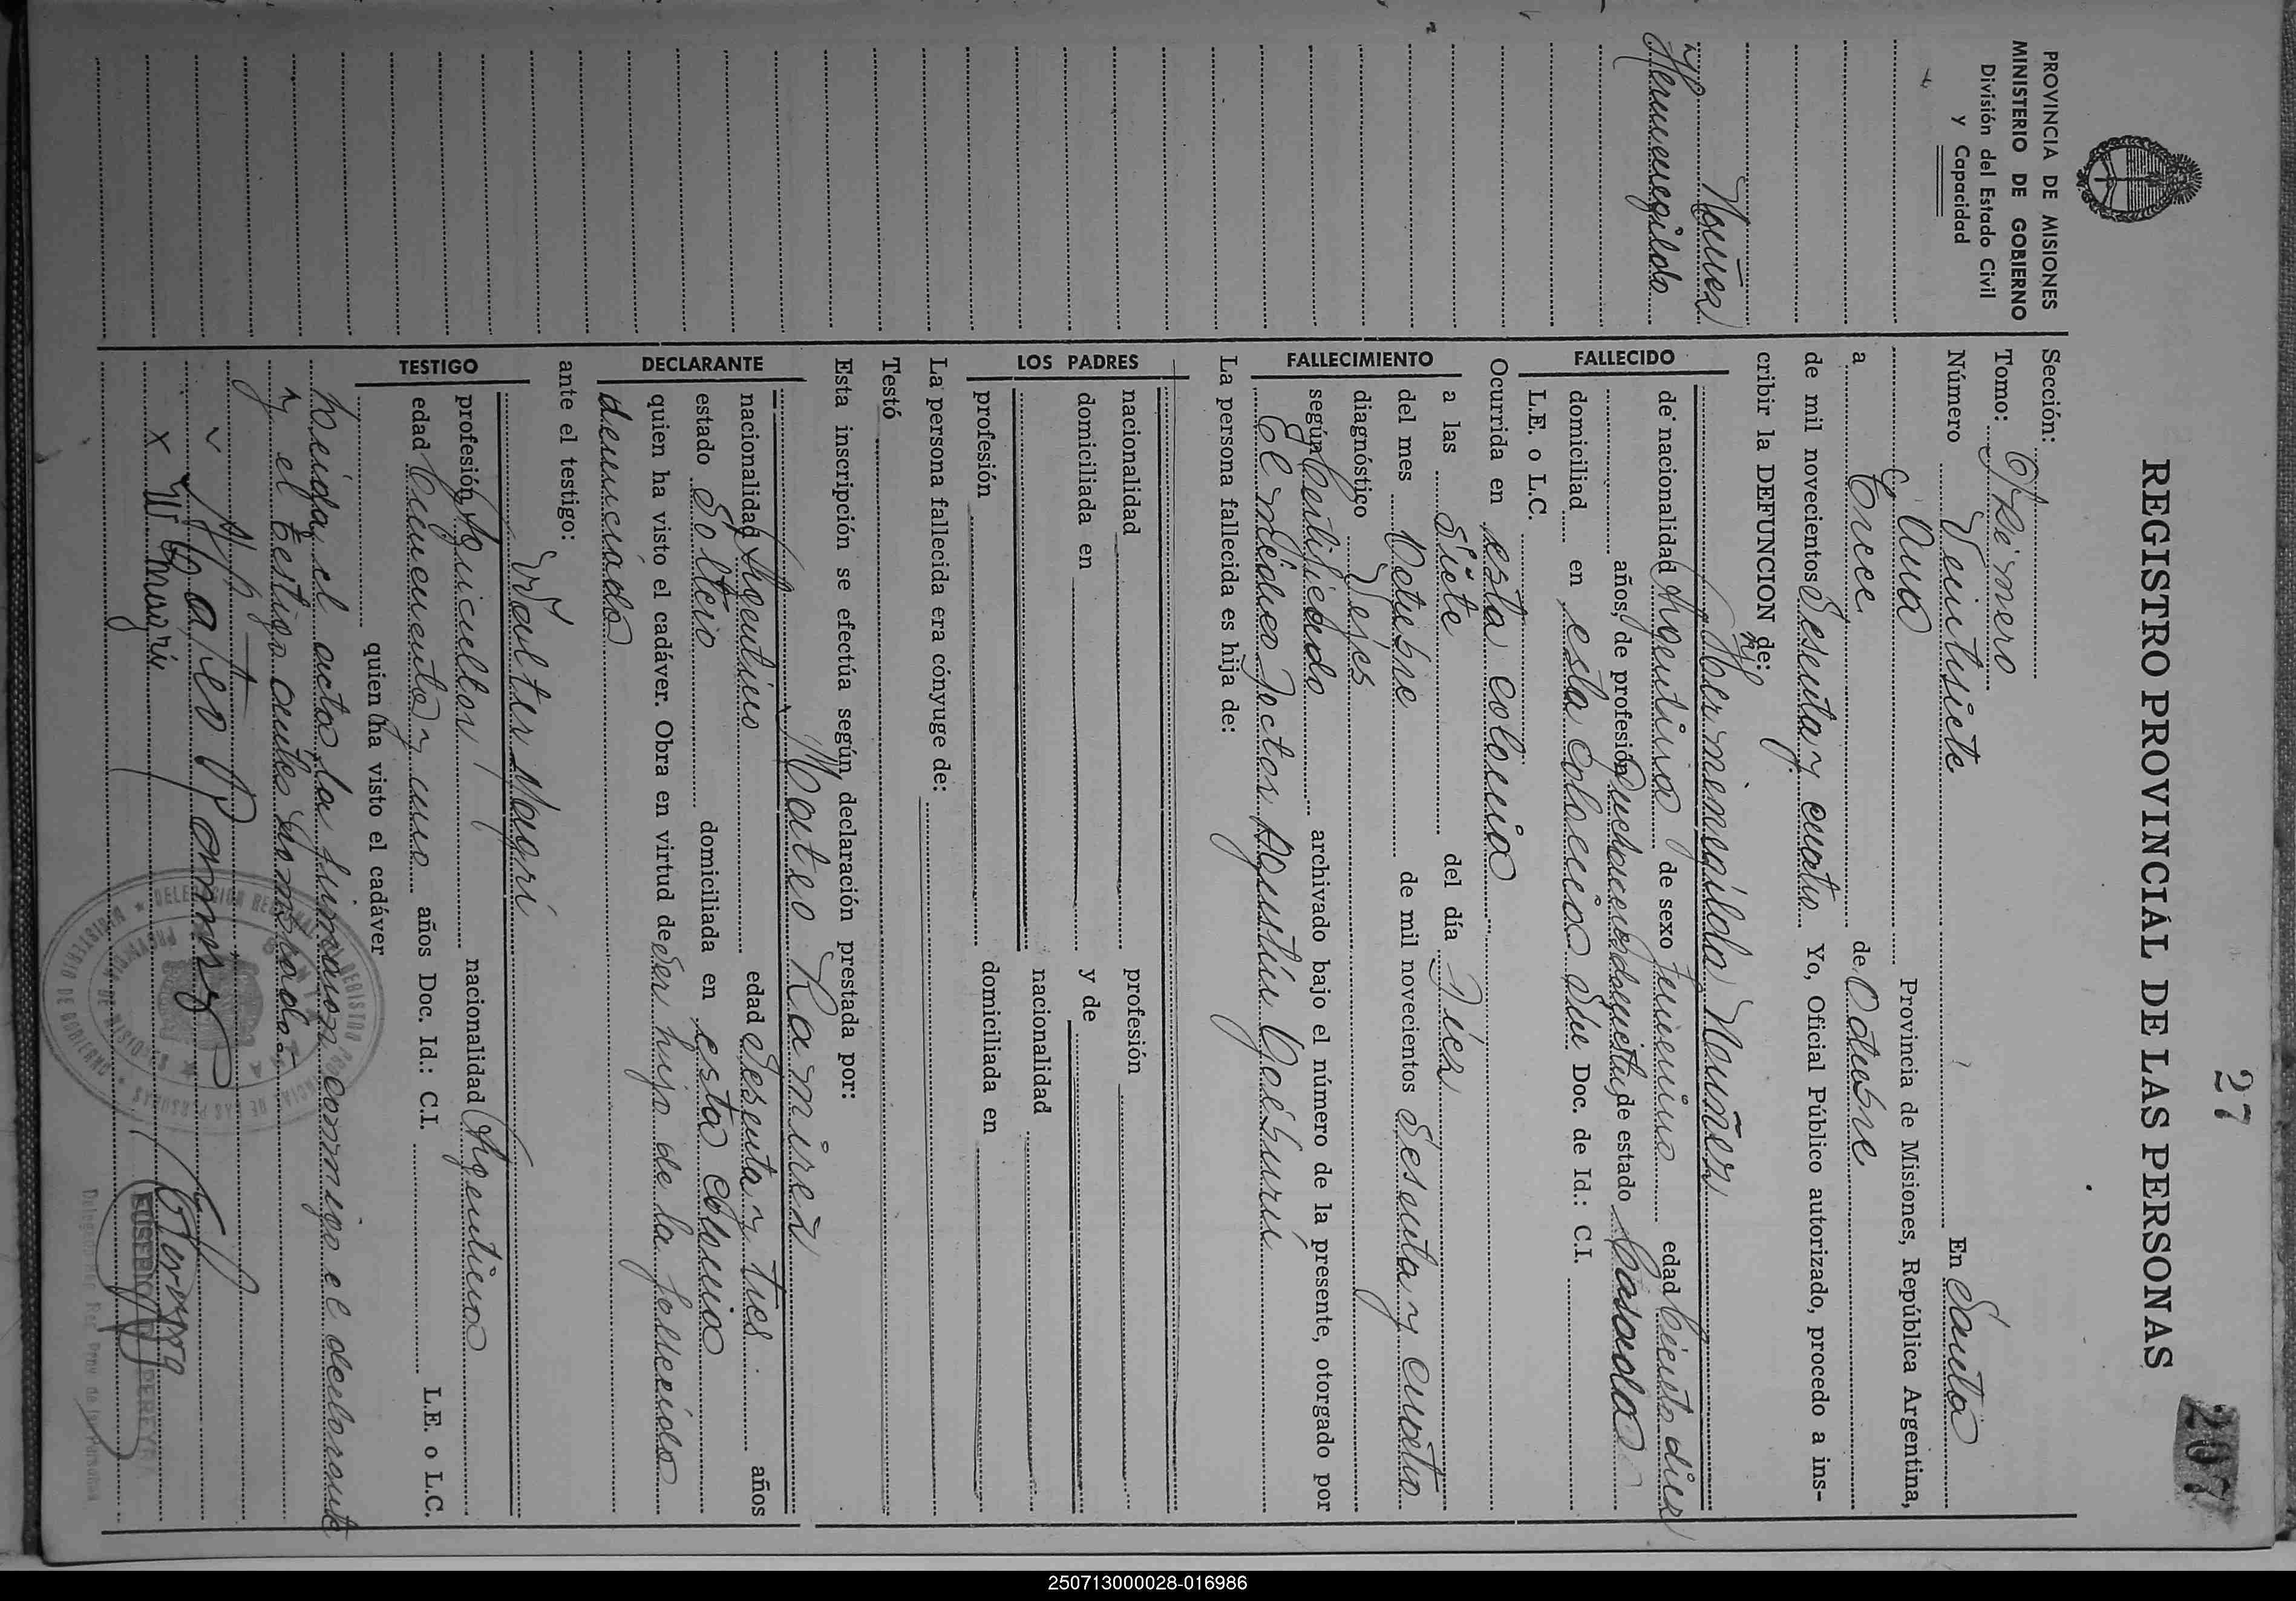 27
207
REGISTRO PROVINCIAL DE LAS PERSONAS
PROVINCIA DE MISIONES
MINISTERIO DE GOBIERNO
División del Estado Civil
y Capacidad
Nouñez
Hermenegildo
Sección:
Tomo: Primero
Número Veintisiete En Santa
Ana Provincia de Misiones, República Argentina,
a Trece de Octubre
de mil novecientos Sesenta y cuatro Yo, Oficial Público autorizado, procedo a ins-
cribir la DEFUNCION de:
FALLECIDO
Hermenegilda Nouñez
de nacionalidad Argentina de sexo Femenino edad Ciento diez
años, de profesión de estado Casada
domiciliad en esta colonia Doc. de Id.: C.I.
L.E. o L.C.
Ocurrida en esta colonia
FALLECIMIENTO
a las Siete del día Diez
del mes Octubre de mil novecientos Sesenta y cuatro
diagnóstico Vejes
según Certificado archivado bajo el número de la presente, otorgado por
El Médico Doctor Agustín
La persona fallecida es hija de:
LOS PADRES
nacionalidad profesión
domiciliada en y de
nacionalidad
profesión domiciliada en
La persona fallecida era cónyuge de:
Testó
Esta inscripción se efectúa según declaración prestada por:
DECLARANTE
Mateo Ramirez
nacionalidad Argentino edad Sesenta y tres años
estado Soltero domiciliada en esta colonia
quien ha visto el cadáver. Obra en virtud de Ser hijo de la fallecida
denunciada
ante el testigo:
TESTIGO
Walter Magri
profesión Agricultor nacionalidad Argentino
edad Cincuenta y uno años Doc. Id.: C.I. L.E. o L.C.
quien ha visto el cadáver
Leida el acta, la firmaron conmigo el declarante
y el testigo antes nombrado.
x W Magri
EUSEBIO PEREYRA
250713000028-016986